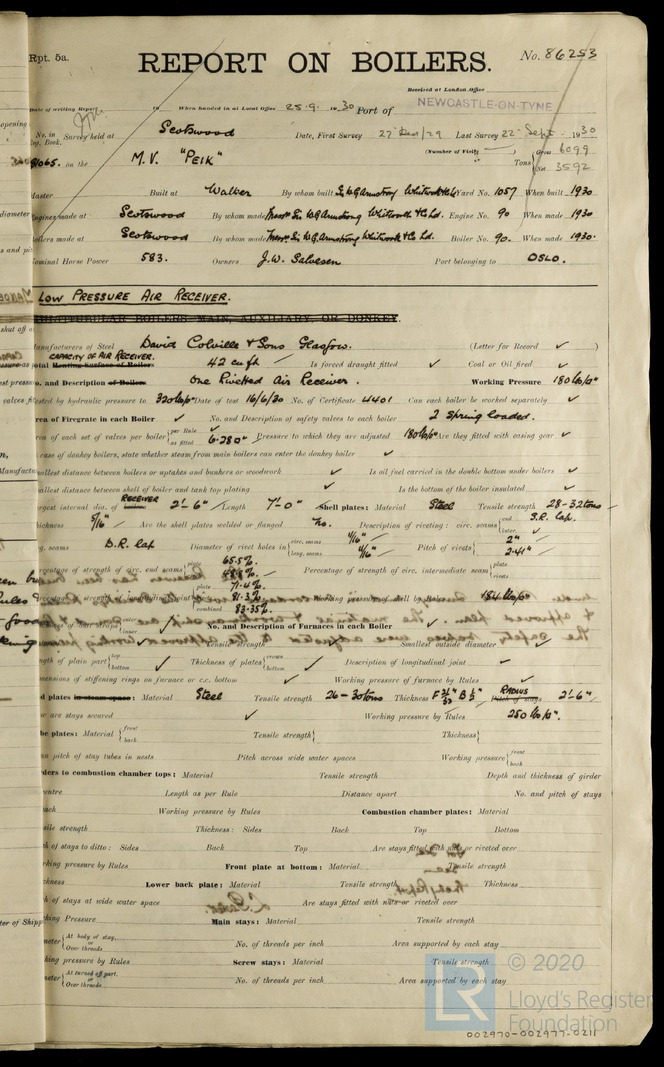 Rpt. 5a.
REPORT ON BOILERS.
No. 86253
Received at London Office
Date of writing Report 19 When handed in at Local Office 25.9.1930 Port of NEWCASTLE-ON-TYNE
No. in Survey held at Scotswood Date, First Survey 27 Last Survey 22 Sept 1930
(Number of Visits) Gross 6099
on the M.V. "PEIK" Tons Net 3592
Master Built at Walker By whom built Sir W.G. Armstrong Whitworth & Co Ld Yard No. 1057 When built 1930
Engines made at Scotswood By whom made Messrs Sir W.G. Armstrong Whitworth & Co Ld. Engine No. 90 When made 1930
Boilers made at Scotswood By whom made Messrs Sir W.G. Armstrong Whitworth & Co Ld. Boiler No. 90. When made 1930.
Nominal Horse Power 583. Owners J.W. Salvesen Port belonging to OSLO.
LOW PRESSURE AIR RECEIVER.
MULTITUBULAR BOILERS MAIN, AUXILIARY OR DONKEY.
Manufacturers of Steel David Colville & Sons Glasgow. (Letter for Record ✓ )
CAPACITY OF AIR RECEIVER.
Total Heating Surface of Boilers 42 cu ft Is forced draught fitted ✓ Coal or Oil fired ✓
No. and Description of Boilers One Rivetted Air Receiver. Working Pressure 180 lb/□"
Tested by hydraulic pressure to 320 lb/□" Date of test 16/6/30 No. of Certificate 4401 Can each boiler be worked separately ✓
Area of Firegrate in each Boiler ✓ No. and Description of safety valves to each boiler 2 Spring loaded.
Area of each set of valves per boiler {per Rule ✓ as fitted 6.280" Pressure to which they are adjusted 180 lb/□" Are they fitted with easing gear ✓
In case of donkey boilers, state whether steam from main boilers can enter the donkey boiler ✓
Smallest distance between boilers or uptakes and bunkers or woodwork ✓ Is oil fuel carried in the double bottom under boilers ✓
Smallest distance between shell of boiler and tank top plating ✓ Is the bottom of the boiler insulated ✓
Largest internal dia. of RECEIVER boilers 2'-6" Length 7'-0" Shell plates: Material Steel Tensile strength 28-32 tons
Thickness 5/16" Are the shell plates welded or flanged No. Description of riveting: circ. seams {end S.R. lap. inter. ✓
long. seams D.R. lap Diameter of rivet holes in {circ. seams 11/16" long. seams 11/16" Pitch of rivets {2" 2.41"
Percentage of strength of circ. end seams {plate 65.5%. Percentage of strength of circ. intermediate seam {plate rivets
plate 71.4% combined 83.35%. 184 lb/□"
No. and Description of Furnaces in each Boiler ✓
Tensile strength Smallest outside diameter ✓
Length of plain part {top bottom ✓ Thickness of plates {crown bottom ✓ Description of longitudinal joint ✓
Dimensions of stiffening rings on furnace or c.c. bottom ✓ Working pressure of furnace by Rules ✓
End plates in steam space: Material Steel Tensile strength 26-30 tons Thickness RADIUS Pitch of stays 2'-6"
How are stays secured ✓ Working pressure by Rules 250 lb/□".
Tube plates: Material {front back Tensile strength{ Thickness{
Mean pitch of stay tubes in nests Pitch across wide water spaces Working pressure {front back
Girders to combustion chamber tops: Material Tensile strength Depth and thickness of girder
at centre Length as per Rule Distance apart No. and pitch of stays
in each Working pressure by Rules Combustion chamber plates: Material
Tensile strength Thickness: Sides Back Top Bottom
Pitch of stays to ditto: Sides Back Top Are stays fitted with nuts or riveted over
Working pressure by Rules Front plate at bottom: Material Tensile strength
Thickness Lower back plate: Material Tensile strength Thickness
Pitch of stays at wide water space Are stays fitted with nuts or riveted over
Working Pressure Main stays: Material Tensile strength
Diameter {At body of stay, or Over threads No. of threads per inch Area supported by each stay
Working pressure by Rules Screw stays: Material Tensile strength
Diameter {At turned off part, or Over threads No. of threads per inch Area supported by each stay
© 2020
LR
Lloyd's Register
Foundation
002970-002977-0211